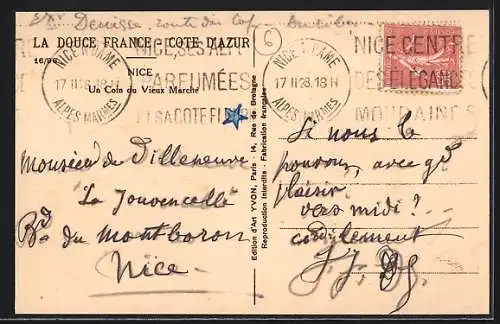 Exp Denisse route du Cap
LA DOUCE FRANCE - COTE D'AZUR
16/96
NICE
Un Coin du Vieux Marché
6
NICE RP DAME
17 II 28. 18 H
ALPES MARMES
NICE, SES ALP
PARFUMÉES
ET SA COTE FL
NICE RP DAME
17 II 28. 18 H
ALPES MARMES
NICE CENTRE
DES ELEGANCES
MONDAINES
Monsieur de Villeneuve
La Jouvencelle
Bd du Montboron
Nice
Edition d'Art YVON, Paris - 14, Rue de Bretagne
Reproduction Interdite - Fabrication française
Si nous le
pouvons, avec gd
plaisir
vers midi?
cordialement